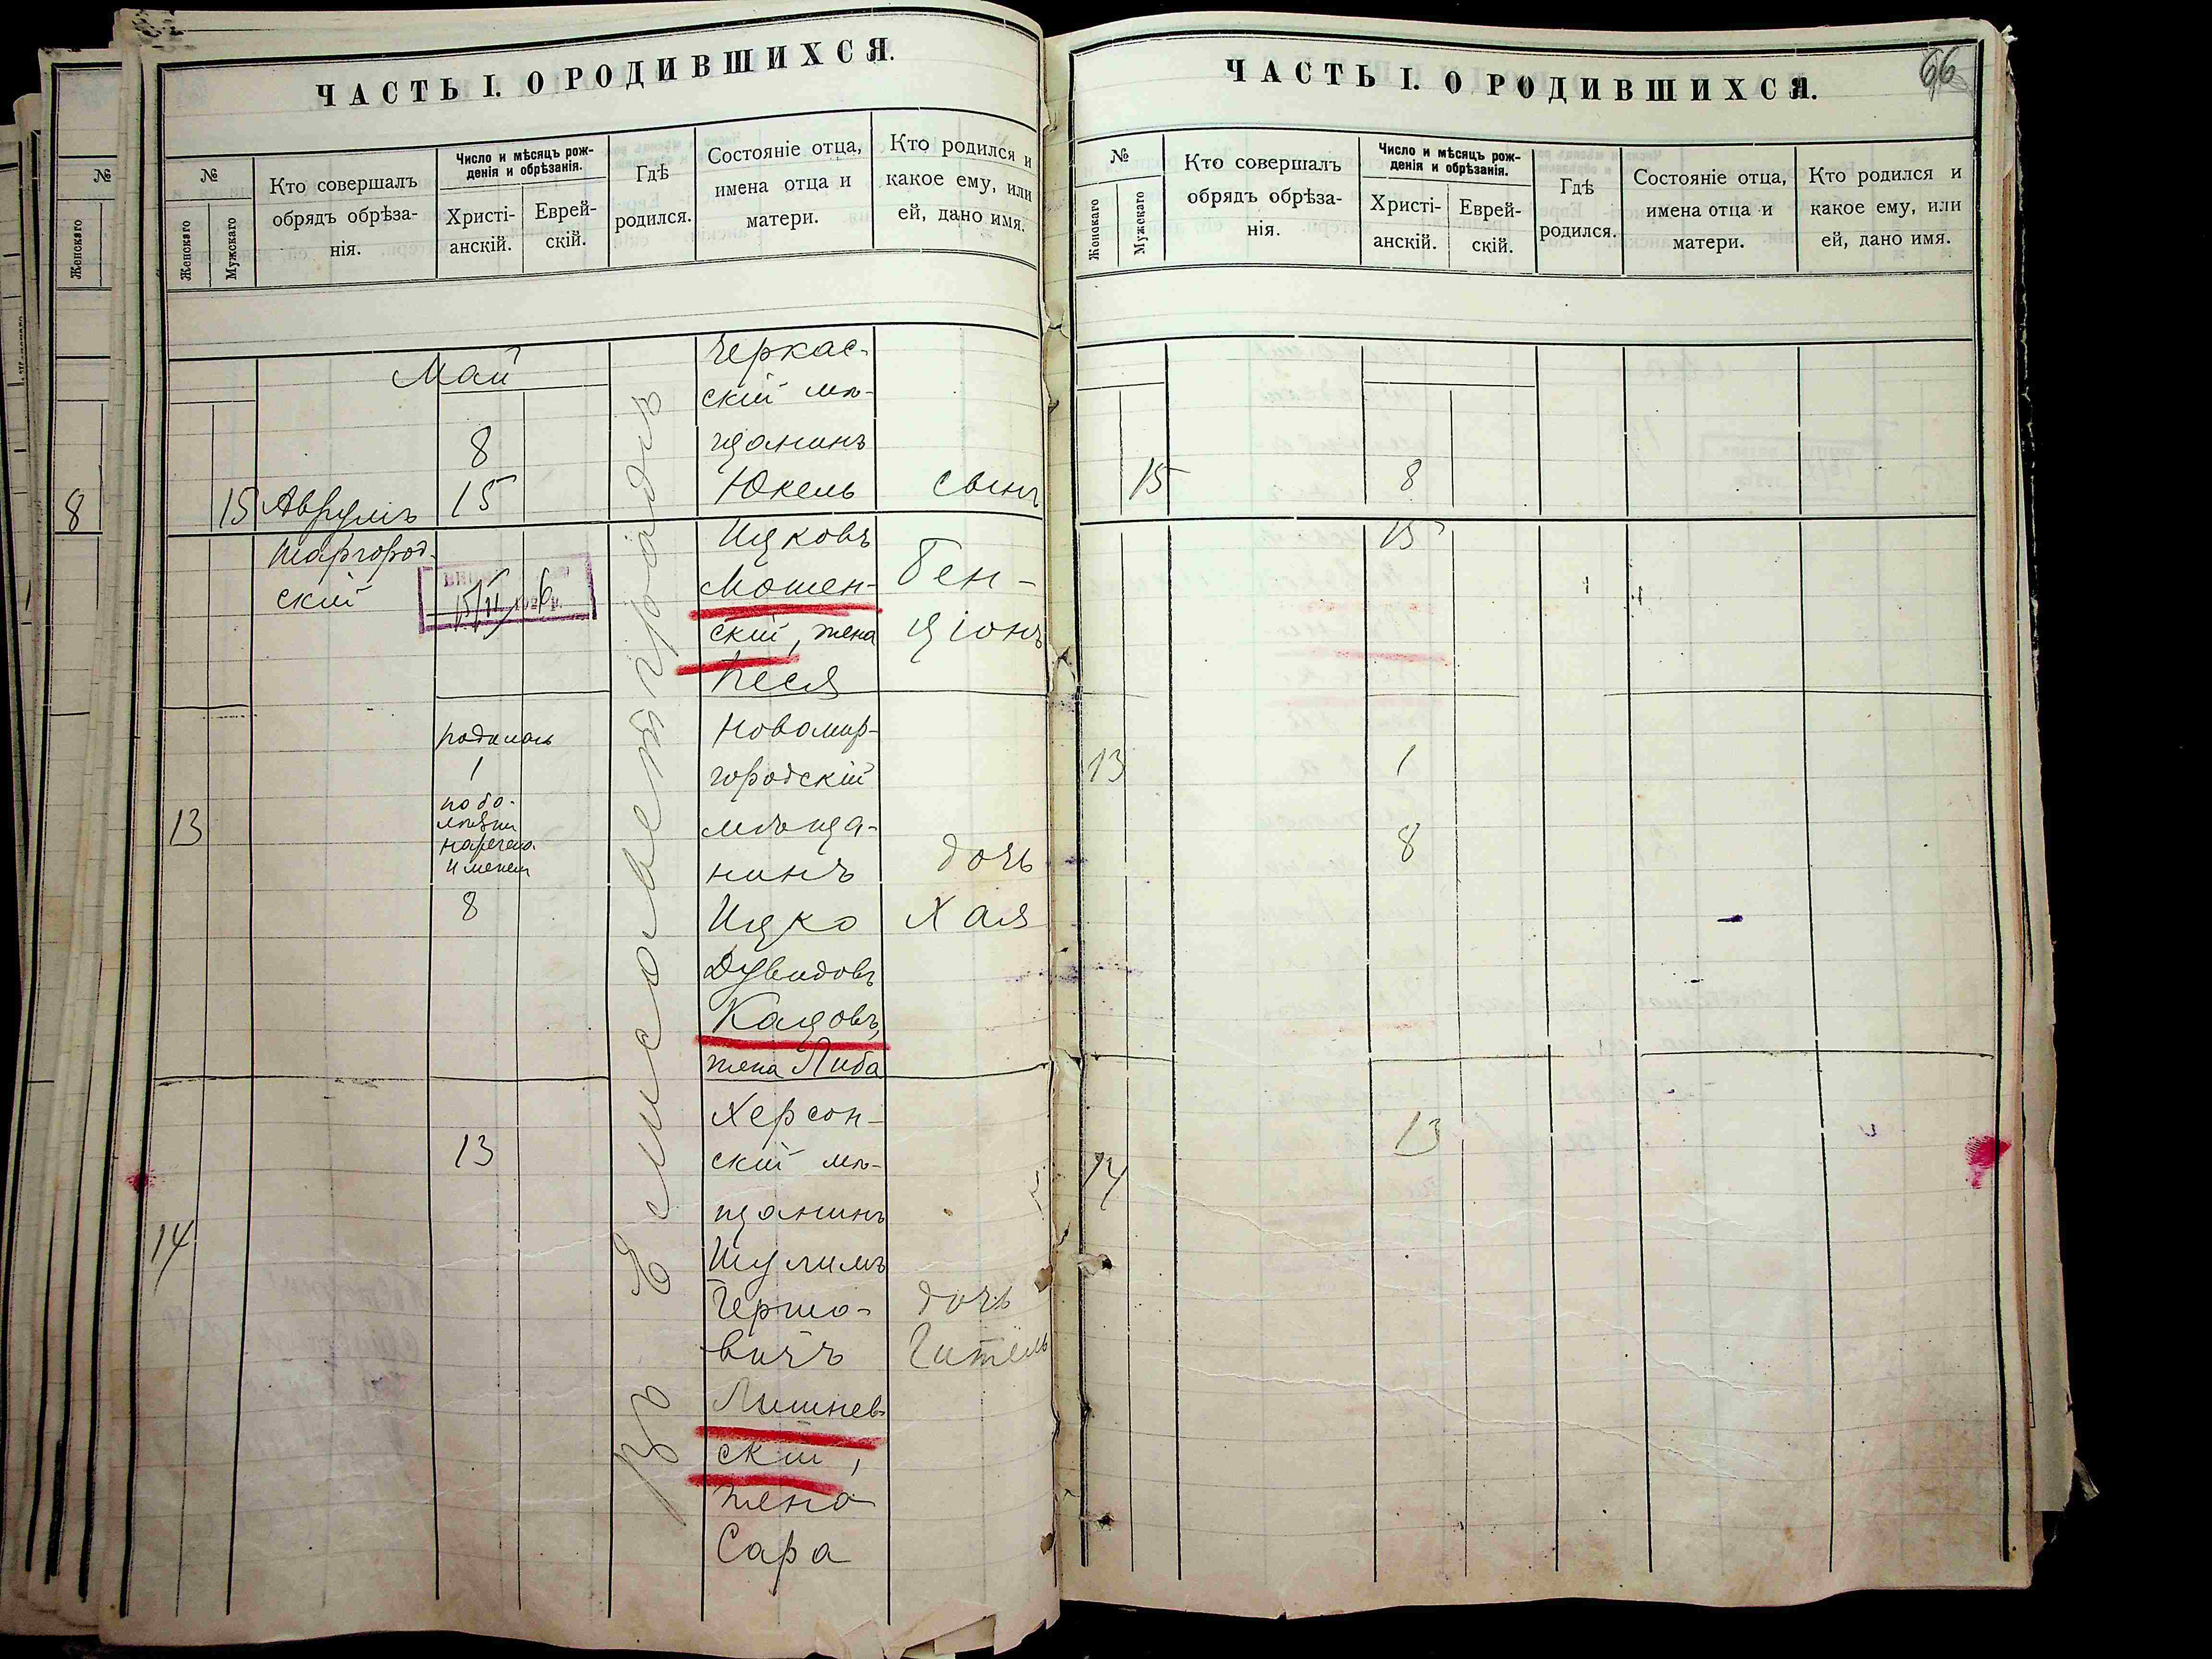 ЧАСТЬ I. О РОДИВШИХСЯ.
№
Женскаго
Мужскаго
Кто совершалъ
обрядъ обрѣза-
нія.
Число и мѣсяцъ рож-
денія и обрѣзанія.
Христі-
анскій.
Еврей-
скій.
Гдѣ
родился.
Состояніе отца,
имена отца и
матери.
Кто родился и
какое ему, или
ей, дано имя.
№
Женскаго
8
Май
въ Елисаветградѣ
15
Аврумъ
Шаргород-
скій
8
15
15/II 6
Черкас-
скій мѣ-
щанинъ
Юкель
Ицковъ
Мошен-
скій, жена
Песя
сынъ
Бен-
ціонъ
13
родилась
1
по бо-
лѣзни
наречена
именем
8
Новомир-
городскій
мѣща-
нинъ
Ицко
Дувидовъ
Кацовъ,
жена Либа
дочь
Хая
14
13
Херсон-
скій мѣ-
щанинъ
Шулимъ
Гершо-
вичъ
Лишнев-
скій,
жена
Сара
дочь
Гитель
66
ЧАСТЬ I. О РОДИВШИХСЯ.
№
Женскаго
Мужскаго
Кто совершалъ
обрядъ обрѣза-
нія.
Число и мѣсяцъ рож-
денія и обрѣзанія.
Христі-
анскій.
Еврей-
скій.
Гдѣ
родился.
Состояніе отца,
имена отца и
матери.
Кто родился и
какое ему, или
ей, дано имя.
15
8
15
13
1
8
14
13